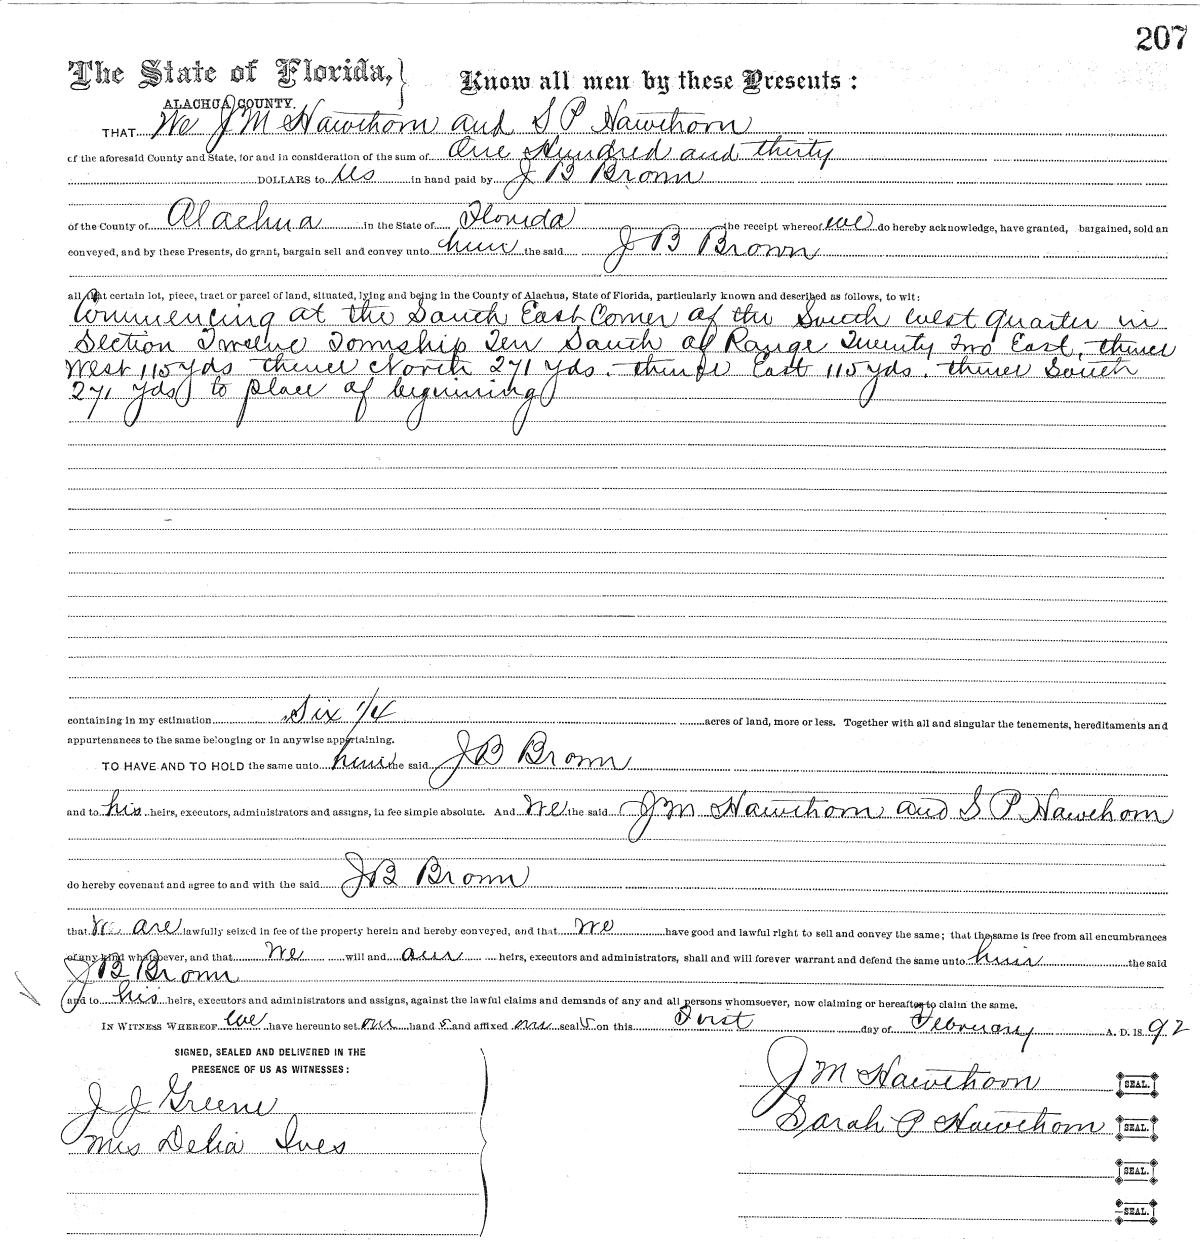 207
The State of Florida, Know all men by these Presents :
ALACHUA COUNTY.
THAT We J M Hawthorn and S P Hawthorn
of the aforesaid County and State, for and in consideration of the sum of One Hundred and thirty
DOLLARS to us in hand paid by J B Brown
of the County of Alachua in the State of Florida the receipt whereof we do hereby acknowledge, have granted, bargained, sold an
conveyed, and by these Presents, do grant, bargain sell and convey unto him the said J B Brown
all that certain lot, piece, tract or parcel of land, situated, lying and being in the County of Alachua, State of Florida, particularly known and described as follows, to wit:
Commencing at the South East Corner of the South west quarter in
Section Twelve Township Ten South of Range Twenty two East, thence
West 115 yds thence North 271 yds. thence East 115 yds. thence South
271 yds to place of beginning
containing in my estimation Six 1/4 acres of land, more or less. Together with all and singular the tenements, hereditaments and
appurtenances to the same belonging or in anywise appertaining.
TO HAVE AND TO HOLD the same unto him the said J B Brown
and to his heirs, executors, administrators and assigns, in fee simple absolute. And We the said J M Hawthorn and S P Hawthorn
do hereby covenant and agree to and with the said J B Brown
that We are lawfully seized in fee of the property herein and hereby conveyed, and that We have good and lawful right to sell and convey the same; that the same is free from all encumbrances
of any kind whatsoever, and that We will and our heirs, executors and administrators, shall and will forever warrant and defend the same unto him the said
J B Brown
and to his heirs, executors and administrators and assigns, against the lawful claims and demands of any and all persons whomsoever, now claiming or hereafter to claim the same.
IN WITNESS WHEREOF We have hereunto set our hand s and affixed our seal s on this First day of February A. D. 18 92
SIGNED, SEALED AND DELIVERED IN THE
PRESENCE OF US AS WITNESSES :
J M Hawthorn SEAL.
J J Greene
Sarah P Hawthorn SEAL.
Mrs Delia Ives
SEAL.
SEAL.